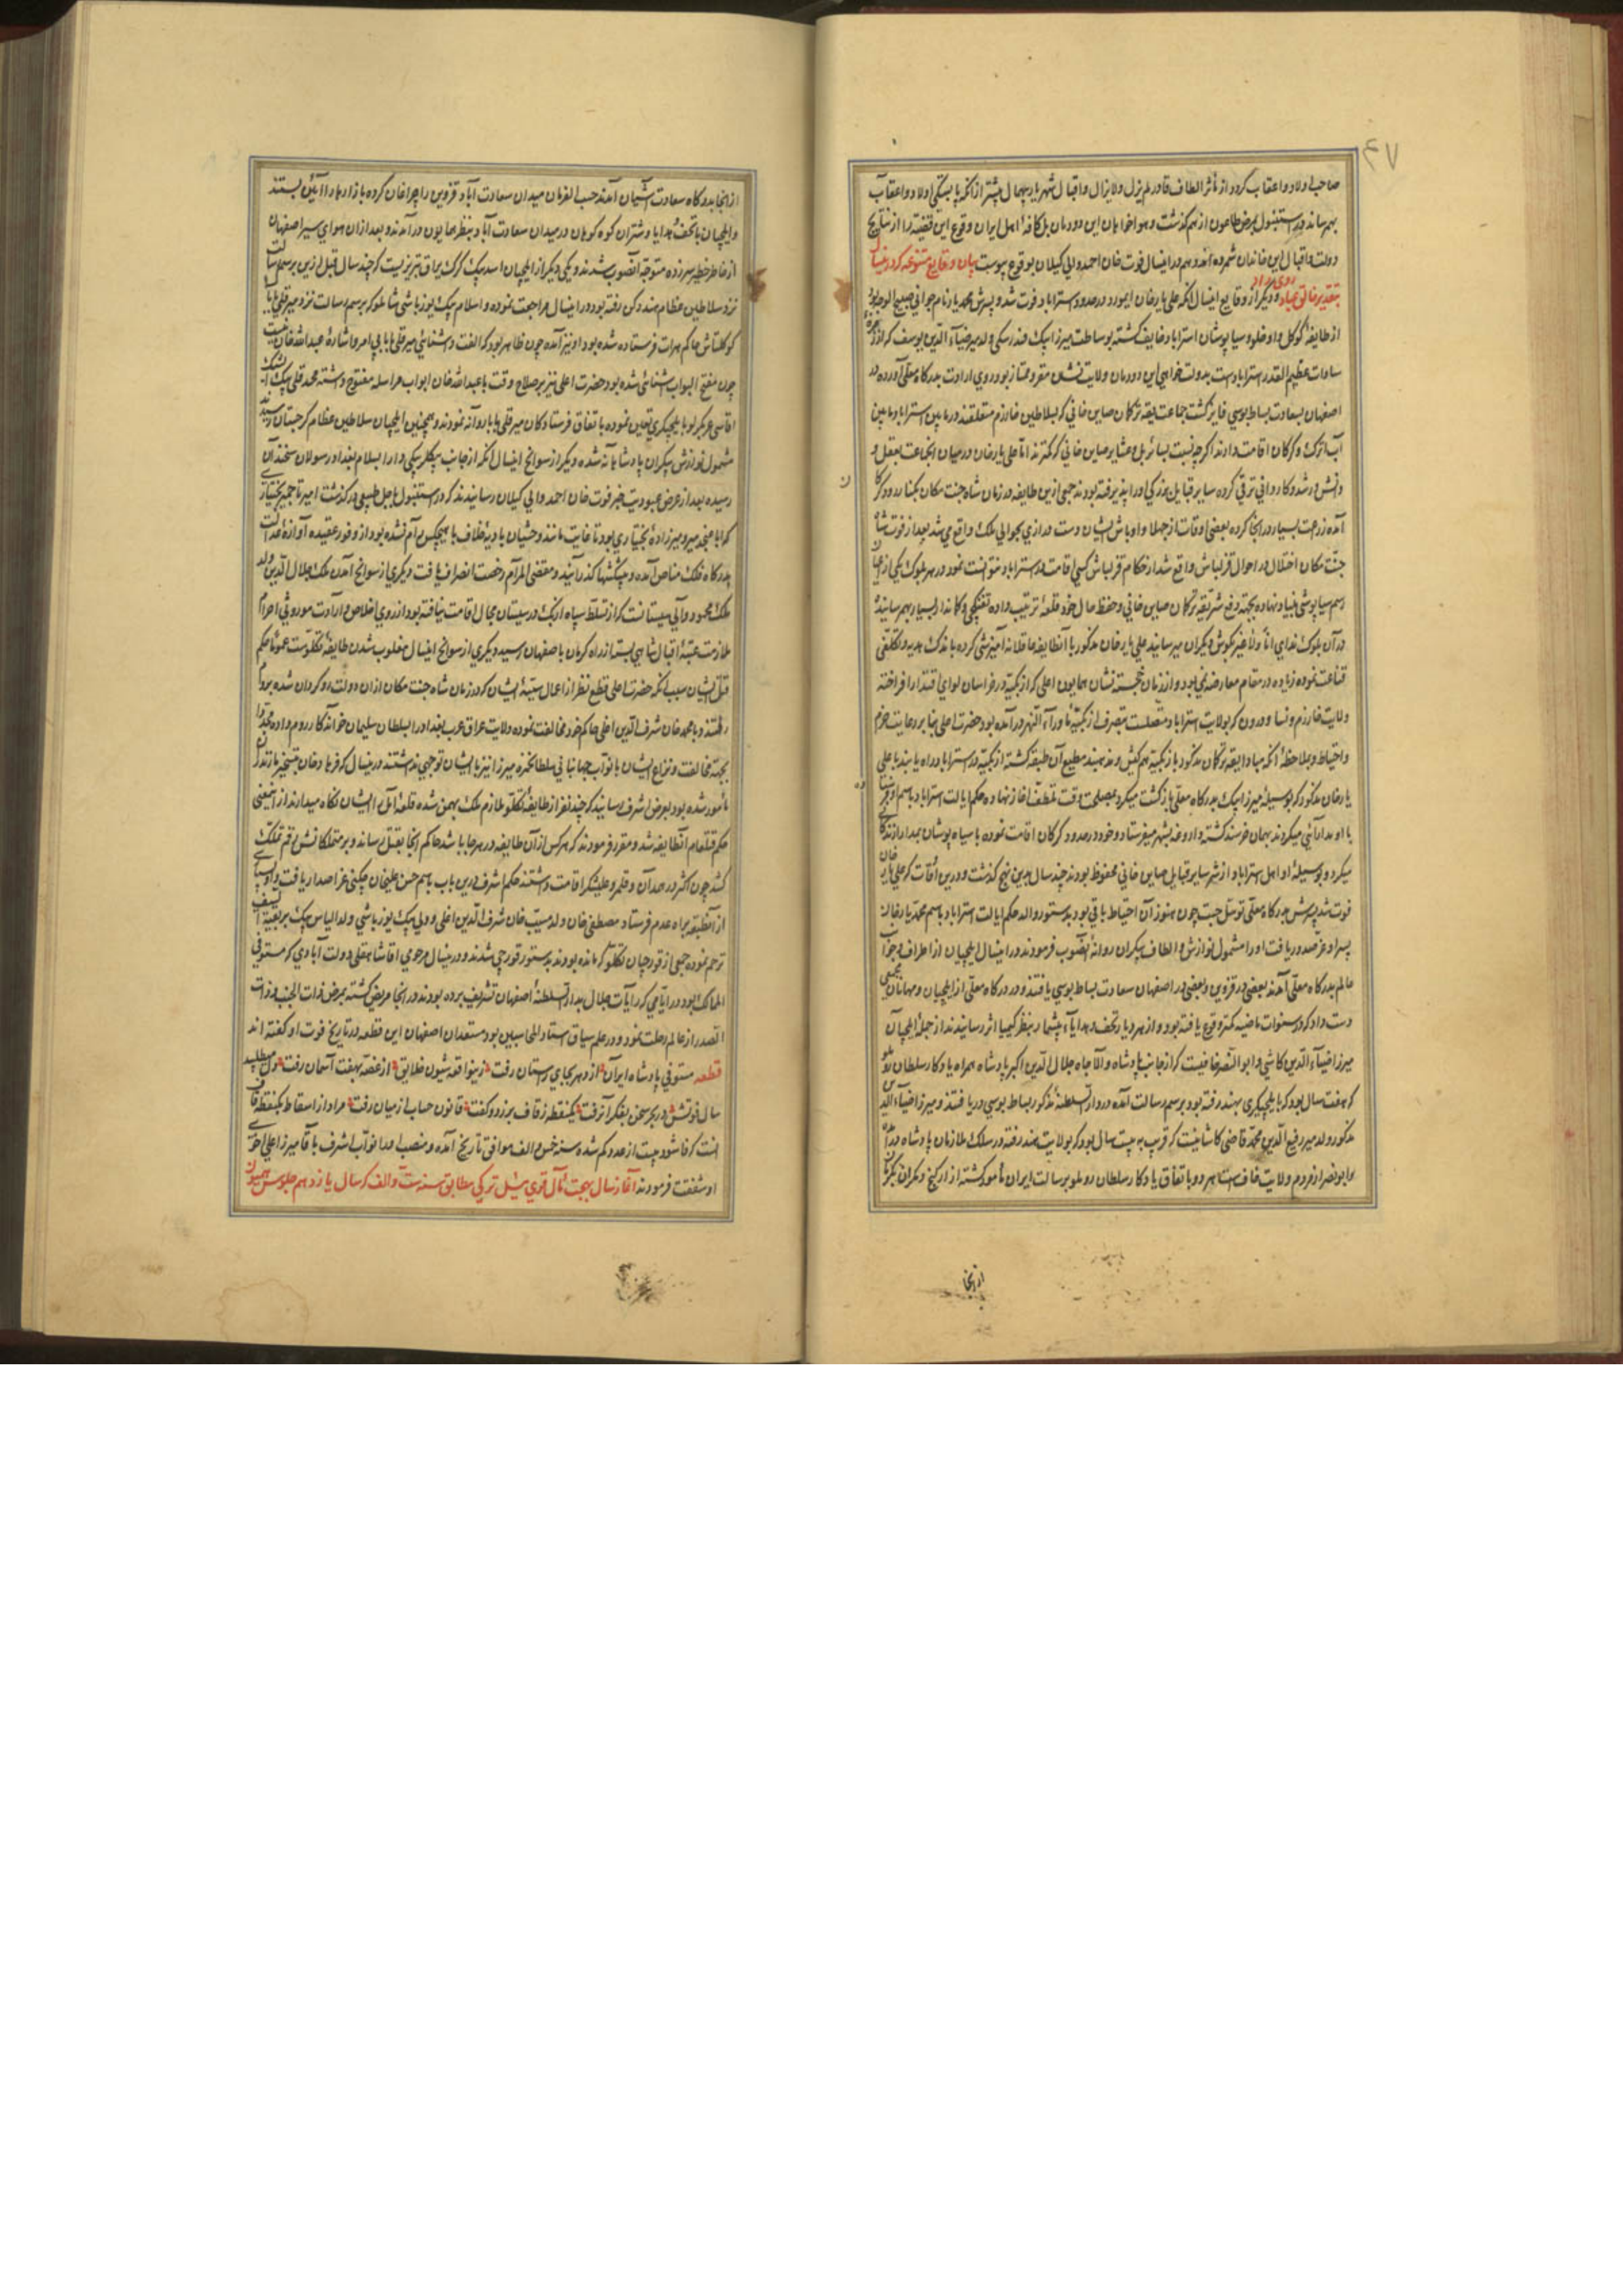 صاحب اولاد و اعقاب کردد از مآثر الطاف قادر لم یزل و لایزال و اقبال شهریار بیهمال پیشتر از آنکه پا بستکی اولاد و اعقاب
بهم رساند در استنبول بمرض طاعون از هم کذشت و هواخواهان این دودمان بل کافهٔ اهل ایران وقوع این قضیه را از نتایج
دولت و اقبال این خاندان شمرده اند و هم در اینسال فوت خان احمد والی کیلان بوقوع پیوست بیان وقایع متنوعه که در اینسال
بتقدیر خالق عباد روی داد و دیکر از وقایع اینسال آنکه علی یار خان ایمور در حدود استراباد فوت شد و پسرش محمد یار نام جوانی صبیح الوجه بود
از طایفهٔ کوکلن و اوخلو و سیاپوشان استراباد خایف کشته بوساطت میرزا بیک فندرسکی ولد میر ضیاء الدین یوسف که از
سادات عظیم القدر استراباد است بدولتخواهی این دودمان ولایت نشان مقرر و ممتاز بود روی ارادت بدرکاه معلی آورده در
اصفهان بسعادت بساط بوسی فایز کشت جماعت یقه ترکمان صاین خانی که بسلاطین خوارزم متعلقند در مابین استراباد مابین
آب اترک و کرکان اقامت دارند اکرچه نسبت بسائر ایل و عشایر صاین خانی کمترند اما علی یار خان در میان انجماعت بعقل و
دانش و رشد و کاردانی ترقی کرده سایر قبایل بزرکی او را پذیرفته بودند جمعی ازین طایفه در زمان شاه جنت مکان بکنار رود کرکان
آمده زراعت بسیار در آنجا کرده بعضی اوقات از جهلا و اوباش ایشان دست درازی بحوالی ملک واقع می شد بعد از فوت شاه
جنت مکان اختلال در احوال قزلباش واقع شد از حکام قزلباش کسی اقامت در استراباد نتوانست نمود در هر بلوک یکی از اعیان
رسم سیاپوشی بنیاد نهاده بجهة دفع شر یقه ترکمان صاین خانی و حفظ مال خود قلعهٔ ترتیب داده تفنکچی و کماندار بسیار بهم رسانیده
در آن بلوک ندای انا و لا غیر بکوش دیکران میرسانید علی یار خان مذکور با آنطایفه عاقلانه آمیزشی کرده باندک هدیه و تکلفی
قناعت نموده زیاده در مقام معارضه نمی بود و از زمان خجسته نشان همایون اعلی که ازبکیه در خراسان لوای اقتدار افراخته
ولایت خوارزم و نسا و درون که بولایت استراباد متصلست بتصرف ازبکیهٔ ماوراء النهر در آمده بود حضرت اعلی بنا بر رعایت حزم
و احتیاط و ملاحظهٔ آنکه مبادا یقه ترکمان مذکور با ازبکیه هم کیش و مذهبند مطیع آن طبقه کشته ازبکیه در استراباد راه یابند با علی
یار خان مذکور که بوسیلهٔ میرزا بیک بدرکاه معلی بازکشت میکرد بمصلحت وقت تلطف آغاز نهاده حکم ایالت استراباد باسم او
با او مدارائی میکردند بهمان خرسند کشته داروغه بشهر میفرستاد و خود در حدود کرکان اقامت نموده با سیاه پوشان بمدارا زندکانی
میکرد و بوسیلهٔ او اهل استراباد از شر سایر قبایل صاین خانی محفوظ بودند چند سال بدین نهج کذشت و درین اوقات که علی یار خان
فوت شد پسرش بدرکاه معلی توسل جست چون هنوز آن احتیاط باقی بود بدستور والد حکم ایالت استراباد باسم محمد یار خان
پسر او عز صدور یافت او را مشمول نوازش و الطاف بیکران روانهٔ آنصوب فرمودند در اینسال ایلچیان از اطراف و جوانب
عالم بدرکاه معلی آمدند بعضی در قزوین و بعضی در اصفهان سعادت بساط بوسی یافتند و در درکاه معلی از ایلچیان و مهمانان جمعی
دست داد که در سنوات ماضیه کمتر وقوع یافته بود و از هر دیار تحف و هدایاء بیشمار بنظر کیمیا اثر رسانیدند از جملهٔ ایلچیان
میرزا ضیاء الدین کاشی و ابو النصر خافیست که از جانب پادشاه والا جاه جلال الدین اکبر پادشاه همراه یادکار سلطان روملو
که هفت سال بود که بایلچیکری بهند رفته بود برسم رسالت آمده در دار السلطنهٔ مذکور بساط بوسی دریافتند و میرزا ضیاء الدین
مذکور ولد میر رفیع الدین محمد قاضی کاشانیست که قریب به بیست سال بود که بولایت هند رفته در سلک ملازمان پادشاه در آمده
و ابو نصر از مردم ولایت خاف است هر دو باتفاق یادکار سلطان روملو برسالت ایران مأمور کشته از راه کیج و مکران
از آنجا
از آنجا بدرکاه سعادت آشیان آمدند حسب الفرمان میدان سعادت آباد قزوین را چراغان کرده بازارها را آئین بستند
و ایلچیان با تحف و هدایا و شتران کوه کوهان در میدان سعادت آباد بنظر همایون در آمدند و بعد از آن هوای سیر اصفهان
از خاطر خطیر سر زده متوجه آنصوب شدند و یکی دیکر از ایلچیان اسد بیک کرک یراق تبریزیست که چند سال قبل ازین برسم رسالت
نزد سلاطین عظام هند و دکن رفته بود در اینسال مراجعت نموده و اسلام بیک یوزباشی شاملو که برسم رسالت نزد میر قلی بابا
کوکلتاش حاکم هرات فرستاده شده بود او نیز آمده چون ظاهر بود که الفت و آشنائی میر قلی بابا بی امر و اشارهٔ عبدالله خان نیست
چون مفتح ابواب آشنائی شده بود حضرت اعلی نیز بر صلاح وقت با عبدالله خان ابواب مراسله مفتوح داشته محمد قلی بیک
آقاسی عربکرلو بایلچیکری تعیین نموده باتفاق فرستادکان میر قلی بابا روانه نمودند و همچنین ایلچیان سلاطین عظام کرجستان رسیده
مشمول نوازش بیکران پادشاهانه شده و دیکر از سوانح اینسال آنکه از جانب بیکلربیکی دار السلام بغداد رسولان سخندان
رسیده بعد از عرض عبودیت خبر فوت خان احمد والی کیلان رسانیدند که در استنبول باجل طبیعی درکذشت امیر تاجمیر بختیاری
بدرکاه فلک مناص آمده و پیشکشها کذرانیده و مقضی المرام رخصت انصراف یافت و دیکری از سوانح آمدن ملک جلال الدین ولد
ملک محمود والی سیستانست که از تسلط سپاه ازبک در سیستان مجال اقامت نیافته بود از روی اخلاص و ارادت موروثی احرام
ملازمت عتبهٔ اقبال شاهی بسته از راه کرمان باصفهان رسید و دیکری از سوانح اینسال مغلوب شدن طایفهٔ تکلوست عموما بحکم
قتل ایشان سبب آنکه حضرت اعلی قطع نظر از اعمال سیئهٔ ایشان که در زمان شاه جنت مکان از آن دولت روکردان شده بروم
رفتند و با محمد خان شرف الدین اغلی حاکم خود مخالفت نموده ولایت عراق عرب بغداد را بسلطان سلیمان خواندکار روم داده مجددا
بجهة مخالفت و نزاع ایشان با نواب جهانبانی سلطان حمزه میرزا نیز با ایشان توجهی نداشتند در اینسال که فرهاد خان بتسخیر مازندران
مأمور شده بود بعرض اشرف رسانید که چند نفر از طایفهٔ تکلو ملازم ملک بهمن شده قلعهٔ آمل را ایشان نکاه میدارند از این معنی
حکم قتل عام آنطایفه شد و مقرر فرمودند که هر کس از آن طایفه در هر جا باشد حاکم آنجا بقتل رساند و بر متملکاتش رقم تملک
کشد چون اکثر در همدان و قلمرو علیشکر اقامت داشتند حکم اشرف درین باب باسم حسن علیخان چکنی عز اصدار یافت
از آنطبقه براه عدم فرستاد مصطفی خان ولد مسیب خان شرف الدین اغلی و ولی بیک یوزباشی ولد الیاس بیک
ترحم نموده جمعی از قورچیان تکلو که مانده بودند بدستور قورچی شدند و در اینسال مرحومی آقا شاه علی دولت آبادی که مستوفی
الممالک بود در ایامی که رایات جلال بدار السلطنهٔ اصفهان تشریف برده بودند در آنجا مریض کشته بمرض ذات الجنب و ذات
الصدر از عالم رحلت نمود و در علم سیاق استاد المحاسبین بود مستعدان اصفهان این قطعه در تاریخ فوت او کفته اند
قطعه مستوفی پادشاه ایران از دهر بجای راستان رفت زین واقعه شیون خلایق از غصه بهفت آسمان رفت دل میطلبید
سال فوتش در بحر سخن بفکر آن رفت یکنقطه ز قاف برزد و کفت قانون حساب از میان رفت مراد از اسقاط یکنقطه قاف
آنست که فا شود بیست از عدد کم شده سنه خمس و الف موافق تاریخ آمده و منصب او را نواب اشرف بآقا میرزا علی اخوی
او شفقت فرمودند آغاز سال بهجت مآل قوی ئیل ترکی مطابق سنه ست و الف که سال یازدهم جلوس همایون